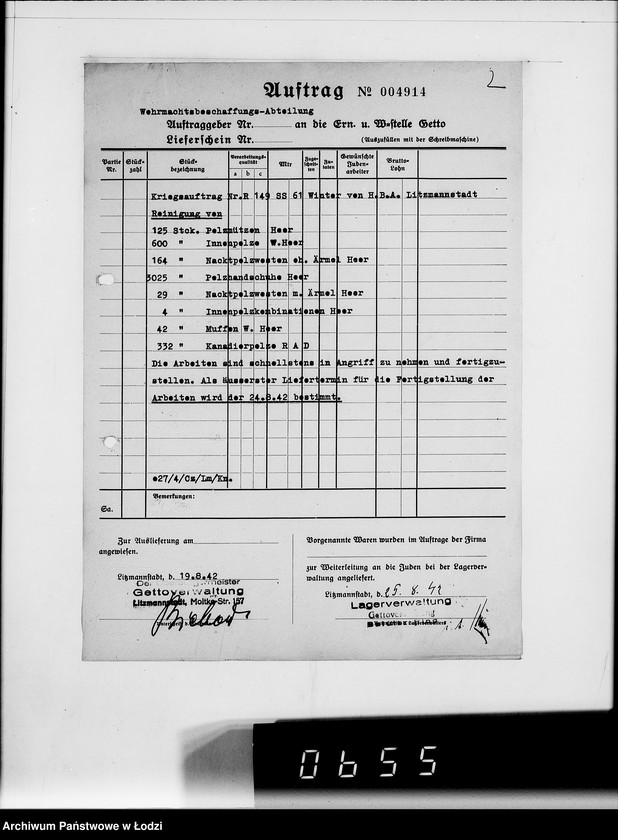 2
Auftrag № 004914
Wehrmachtsbeschaffungs-Abteilung
Auftraggeber Nr. an die Ern. u. W-stelle Getto
Lieferschein Nr. (Auszufüllen mit der Schreibmaschine)
Partie Nr. Stückzahl Stückbezeichnung Verarbeitungsqualität a b c Mtr Zugeschnitten Zutaten Gewünschte Judenarbeiter Brutto-Lohn
Kriegsauftrag Nr.R 149 SS 61 Winter von H.B.A. Litzmannstadt
Reinigung von
125 Stck. Pelzmützen Heer
600 " Innenpelze W.Heer
164 " Nacktpelzwesten oh. Ärmel Heer
5025 " Pelzhandschuhe Heer
29 " Nacktpelzwesten m. Ärmel Heer
4 " Innenpelzkombinationen Heer
42 " Muffen W. Heer
332 " Kanadierpelze R A D
Die Arbeiten sind schnellstens in Angriff zu nehmen und fertigzu-
stellen. Als äusserster Liefertermin für die Fertigstellung der
Arbeiten wird der 24.8.42 bestimmt.
027/4/Cz/Lm/Kn.
Sa. Bemerkungen:
Zur Auslieferung am
angewiesen.
Litzmannstadt, d. 19.8.42
Gettoverwaltung
Litzmannstadt, Moltke-Str. 157
Vorgenannte Waren wurden im Auftrage der Firma
zur Weiterleitung an die Juden bei der Lagerver-
waltung angeliefert.
Litzmannstadt, d. 25.8.42
Lagerverwaltung
0655
Archiwum Państwowe w Łodzi